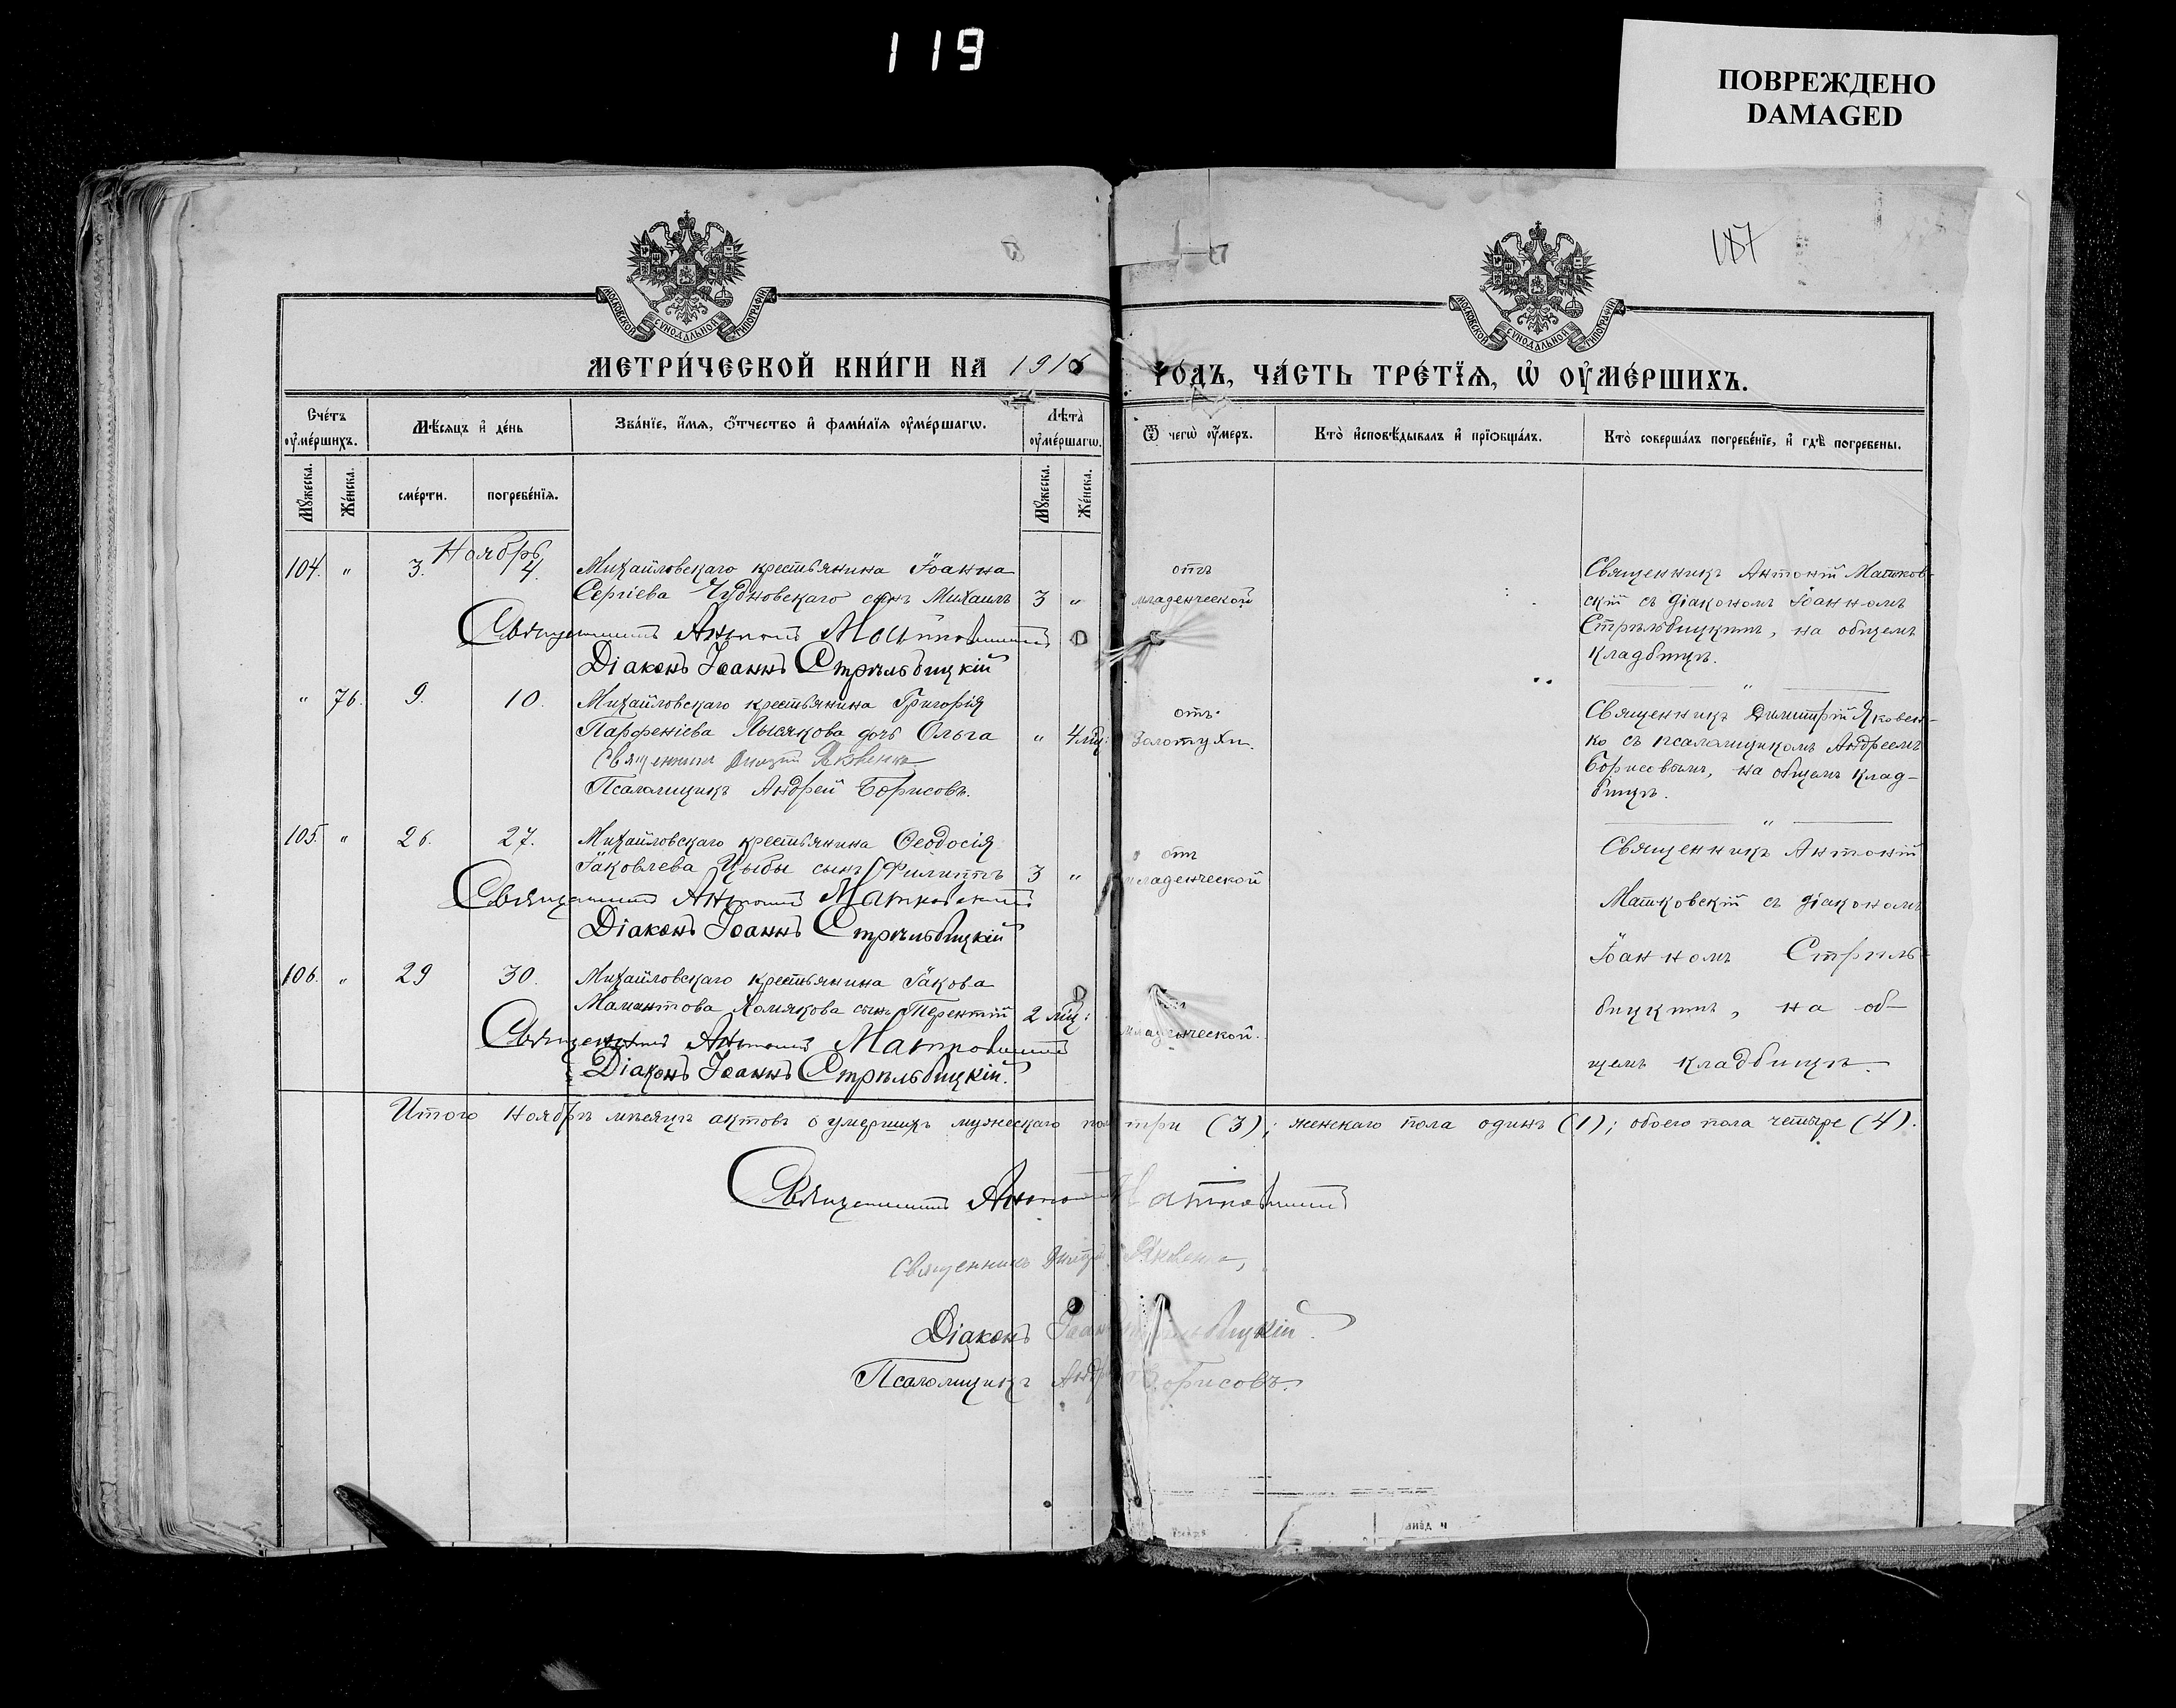 119
ПОВРЕЖДЕНО
DAMAGED
187
МОСКОВСКОЙ СѴНОДАЛЬНОЙ ТИПОГРАФІИ
МОСКОВСКОЙ СѴНОДАЛЬНОЙ ТИПОГРАФІИ
МЕТРИ́ЧЕСКОЙ КНИ́ГИ НА 1916
ГО́ДЪ, ЧА́СТЬ ТРЕ́ТЇѦ, Ѡ҆ ОУ҆МЕ́РШИХЪ.
Сче́тъ оу҆ме́ршихъ.
Мѣ́сѧцъ и҆ де́нь
Зва́нїе, и҆́мѧ, ѻ҆́тчество и҆ фами́лїѧ оу҆ме́ршагѡ.
Лѣта̀ оу҆ме́ршагѡ.
Ѿ чегѡ̀ оу҆́меръ.
Кто̀ и҆сповѣ́дывалъ и҆ прїѻбща́лъ.
Кто̀ соверша́лъ погребе́нїе, и҆ гдѣ̀ погребены.
Мꙋ́жеска.
Же́нска.
сме́рти.
погребе́нїѧ.
Мꙋ́жеска.
Же́нска.
Ноябрь
104. " 3. 4. Михайловскаго крестьянина Іоанна
Сергіева Чудновскаго сынъ Михаилъ 3 "
Священникъ Антоній Матковскій
Діаконъ Іоаннъ Стрѣльбицкій
отъ
младенческой
Священникъ Антоній Матков-
скій съ діакономъ Іоанномъ
Стрѣльбицкимъ, на общемъ
кладбищѣ.
" 76. 9. 10. Михайловскаго крестьянина Григорія
Парфеніева Лысякова дочь Ольга " 4 мц:
Священникъ Димитрій Яковенко
Псаломщикъ Андрей Борисовъ.
отъ
золотухи.
Священникъ Димитрій Яковен-
ко съ псаломщикомъ Андреемъ
Борисовымъ, на общемъ клад-
бищѣ.
105. " 26. 27. Михайловскаго крестьянина Ѳеодосія
Іаковлева Цыбы сынъ Филиппъ 3 "
Священникъ Антоній Матковскій
Діаконъ Іоаннъ Стрѣльбицкій
отъ
младенческой
Священникъ Антоній
Матковскій съ діакономъ
Іоанномъ Стрѣль-
бицкимъ, на об-
щемъ кладбищѣ.
106. " 29 30. Михайловскаго крестьянина Іакова
Мамантова Хомякова сынъ Терентій 2 мц:
Священникъ Антоній Матковскій
Діаконъ Іоаннъ Стрѣльбицкій.
отъ
младенческой.
Итого Ноябрѣ мѣсяцѣ актовъ о умершихъ мужескаго пола три (3); женскаго пола одинъ (1); обоего пола четыре (4).
Священникъ Антоній Матковскій
Священникъ Димитрій Яковенко,
Діаконъ Іоаннъ Стрѣльбицкій.
Псаломщикъ Андрей Борисовъ.